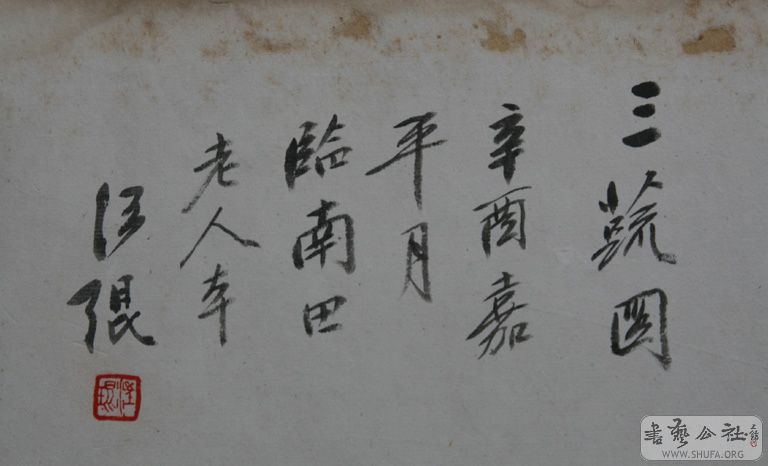 三蔬图
辛酉嘉
平月
临南田
老人本
汪琨
書藝公社
WWW.SHUFA.ORG